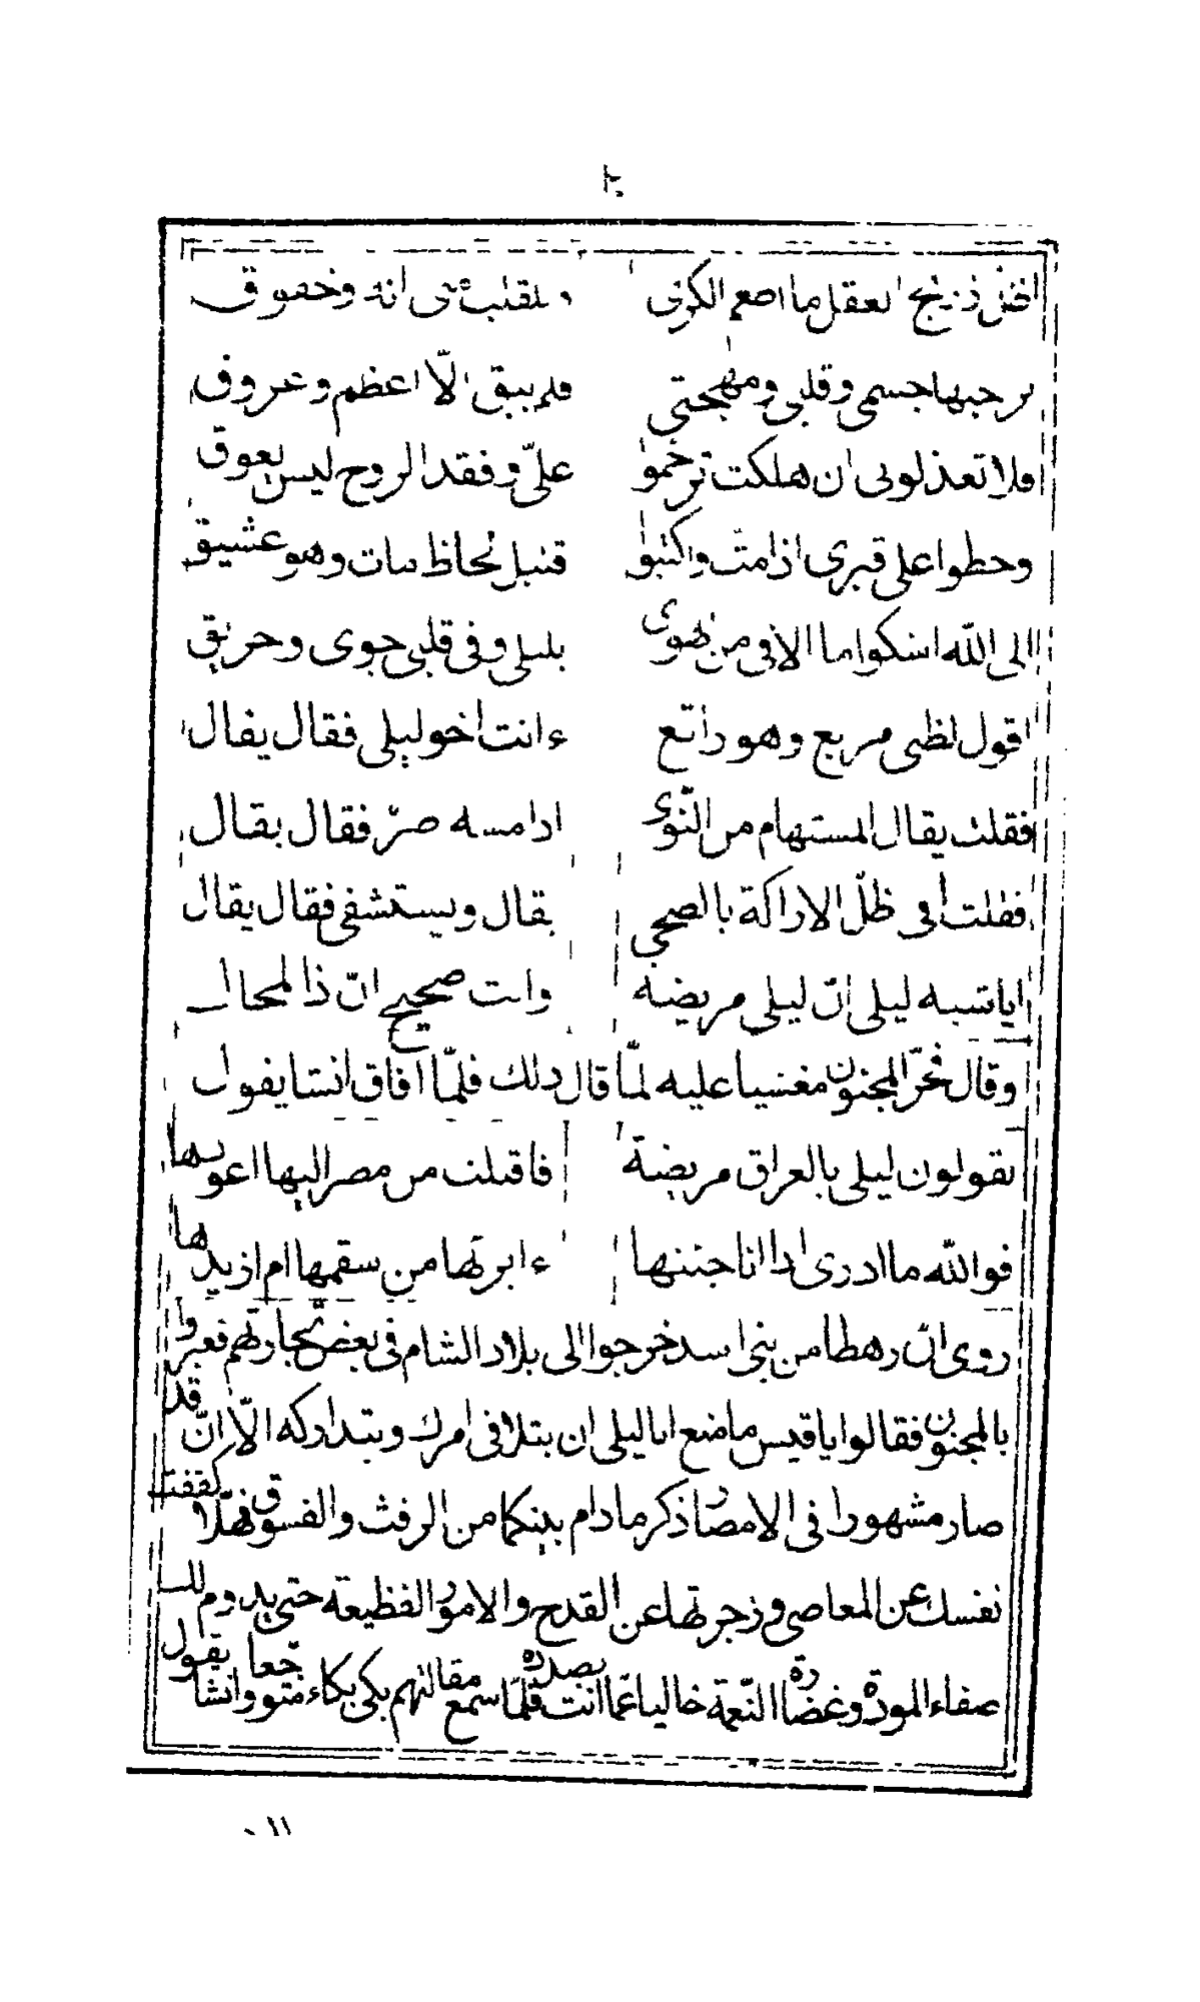 ٢٠
العقل ما اصعر الكرى وللقلب منى انة وخفوق
برى حبها جسمى وقلبى ومهجتى فلم يبق الّا اعظم وعروق
فلا تعذلونى ان هلكت ترحموا علىّ وفقد الروح ليس يعوق
وخطوا على قبرى اذا متّ واكتبوا قتيل لحاظ مات وهو عشيق
الى اللّه اشكوا ما الاقى من الهوى بليلى وفى قلبى جوى وحريق
اقول لظبى مر بى وهو راتع ءانت اخو ليلى فقال يقال
فقلت يقال المستهام من النّوى اذا مسه ضرّ فقال يقال
فقلت أفى ظلّ الاراكة بالضحى يقال ويستشفى فقال يقال
ايا شبه ليلى انّ ليلى مريضة وانت صحيح انّ ذا لمحال
وقال فخرّ المجنون مغشيا عليه لمّا قال ذلك فلمّا افاق انشا يقول
يقولون ليلى بالعراق مريضة فاقبلت من مصر اليها اعودها
فواللّه ما ادرى اذا انا جئتها ءابرئها من سقمها ام ازيدها
روى انّ رهطا من بنى اسد خرجوا الى بلاد الشام فى بعض تجارتهم فعبروا
بالمجنون فقالوا يا قيس ما منع ابا ليلى ان يتلافى امرك ويتداركه الّا انّ قد
صار مشهورا فى الامصار ذكر ما دام بينكما من الرفث والفسوق فهلّا كففت
نفسك عن المعاصى وزجرتها عن القدح والامور الفظيعة حتى يدوم لك
صفاء المودة وغضارة النّعمة خاليا عمّا انت بصدده فلمّا سمع مقالتهم بكى بكاء متوجعا وانشا يقول